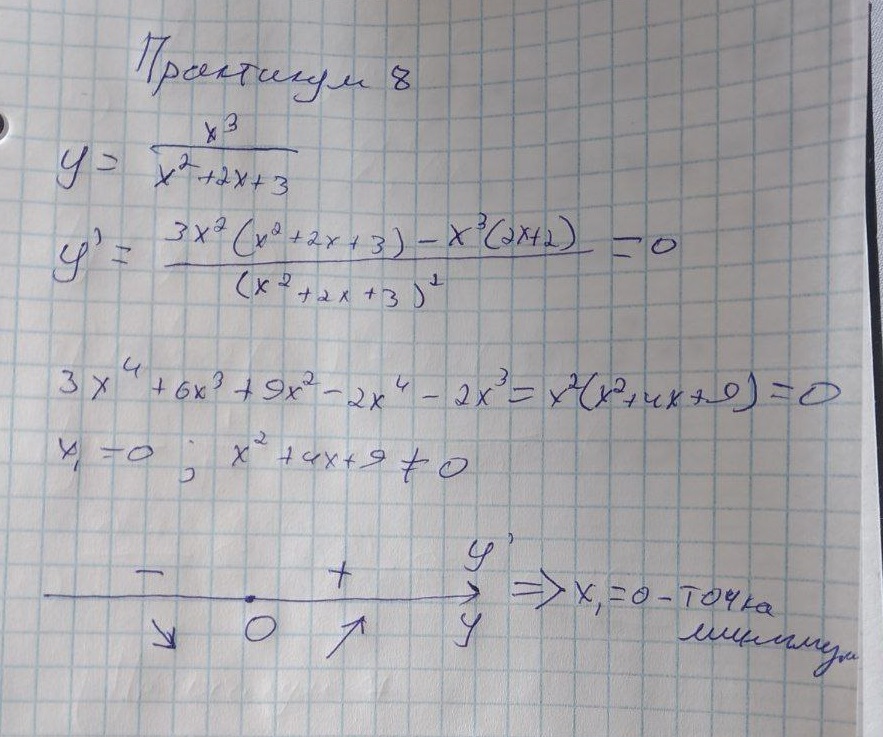 Практикум 8
y = x³ / (x² + 2x + 3)
y' = (3x²(x² + 2x + 3) - x³(2x+2)) / (x² + 2x + 3)² = 0
3x⁴ + 6x³ + 9x² - 2x⁴ - 2x³ = x²(x² + 4x + 9) = 0
x₁ = 0 ; x² + 4x + 9 ≠ 0
- + y' => x₁ = 0 - точка
↘ 0 ↗ y минимум